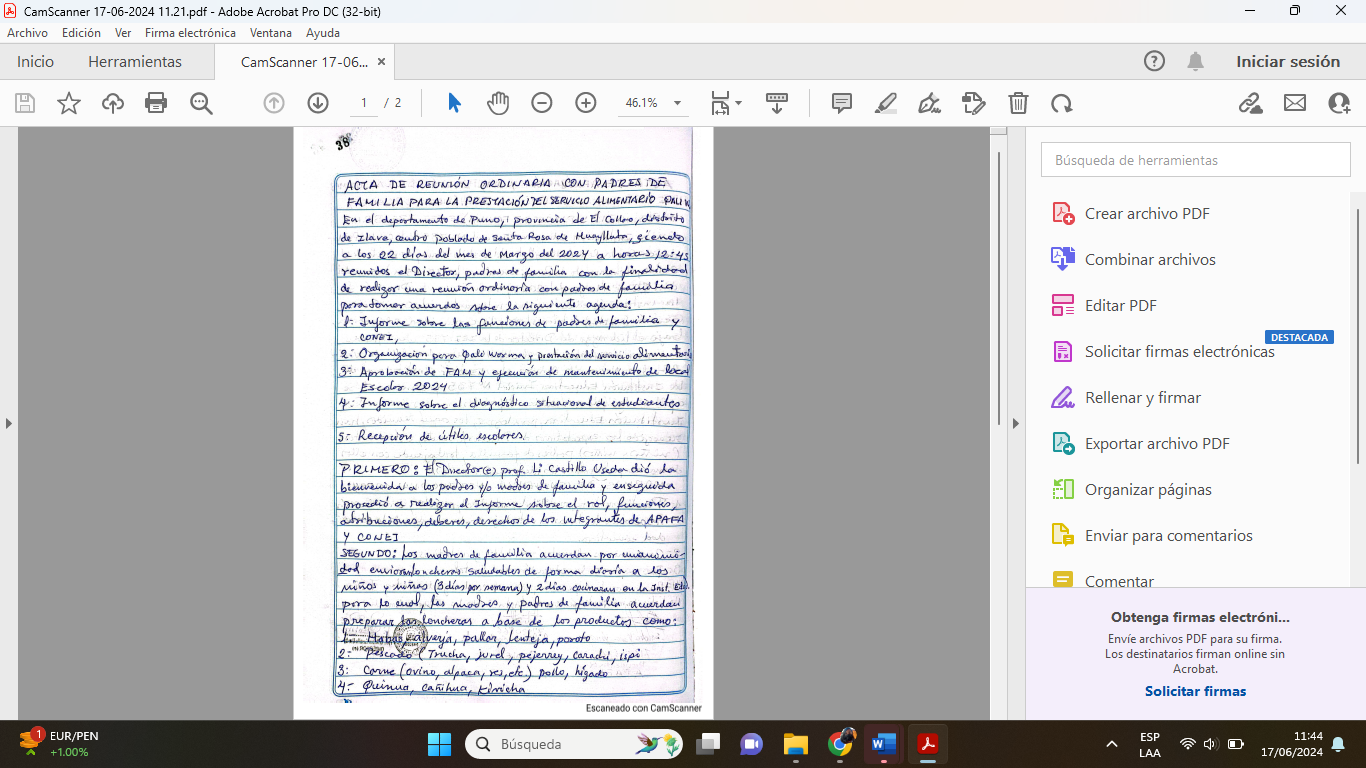 CamScanner 17-06-2024 11.21.pdf - Adobe Acrobat Pro DC (32-bit)
Archivo Edición Ver Firma electrónica Ventana Ayuda
Inicio Herramientas CamScanner 17-06... × Iniciar sesión
1 / 2 46.1%
38
ACTA DE REUNIÓN ORDINARIA CON PADRES DE
FAMILIA PARA LA PRESTACIÓN DEL SERVICIO ALIMENTARIO QALI W
En el departamento de Puno, provincia de El Collao, distrito
de Ilave, centro poblado de Santa Rosa de Huayllata, siendo
a los 22 días del mes de Marzo del 2024 a horas 12:45
reunidos el Director, padres de familia con la finalidad
de realizar una reunión ordinaria con padres de familia
para tomar acuerdos sobre la siguiente agenda:
1: Informe sobre las funciones de padres de familia y
CONEI,
2: Organización para Qali Warma y prestación del servicio alimentario
3: Aprobación de FAM y ejecución de mantenimiento de local
Escolar 2024
4: Informe sobre el diagnóstico situacional de estudiantes
5: Recepción de útiles escolares.
PRIMERO: El Director(e) prof. Li Castillo Useda dió la
bienvenida a los padres y/o madres de familia y enseguida
procedió a realizar el Informe sobre el rol, funciones,
atribuciones, deberes, derechos de los integrantes de APAFA
Y CONEI
SEGUNDO: Los madres de familia acuerdan por unanimi-
dad enviar loncheras saludables de forma diaria a los
niños y niñas (3 días por semana) y 2 días cocinaran en la Inst. Ed.
para lo cual, las madres y padres de familia acuerdan
preparar las loncheras a base de los productos como:
1- Habas, alverja, pallar, lenteja, poroto
2- Pescado (Trucha, jurel, pejerrey, carachi, ispi
3: Carne (ovino, alpaca, res, etc) pollo, hígado
4- Quinua, cañihua, kiwicha
Escaneado con CamScanner
Búsqueda de herramientas
Crear archivo PDF
Combinar archivos
Editar PDF
DESTACADA
Solicitar firmas electrónicas
Rellenar y firmar
Exportar archivo PDF
Organizar páginas
Enviar para comentarios
Comentar
Obtenga firmas electróni...
Envíe archivos PDF para su firma.
Los destinatarios firman online sin
Acrobat.
Solicitar firmas
1 EUR/PEN
+1.00%
Búsqueda
ESP
LAA
11:44
17/06/2024